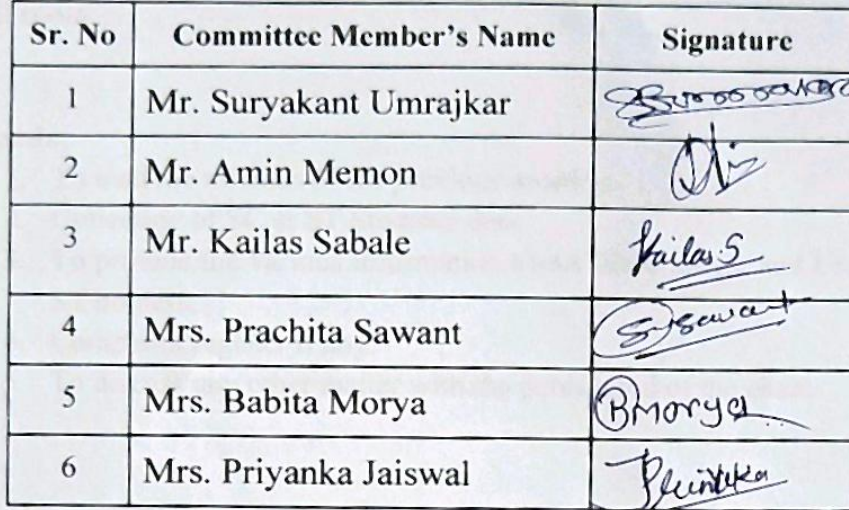 Sr. No Committee Member's Name Signature
1 Mr. Suryakant Umrajkar
2 Mr. Amin Memon
3 Mr. Kailas Sabale Kailas S
4 Mrs. Prachita Sawant Sawant
5 Mrs. Babita Morya BMorya
6 Mrs. Priyanka Jaiswal